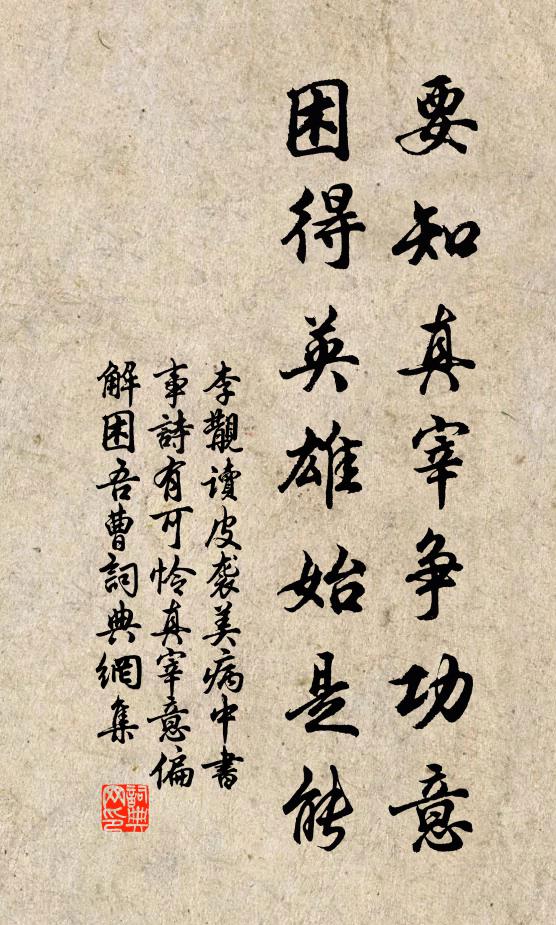 要知真宰争功意
困得英雄始是能
李覯读皮袭美病中書
事詩有可怜真宰意偏
解困吾曹詞典網集
詞典
网印